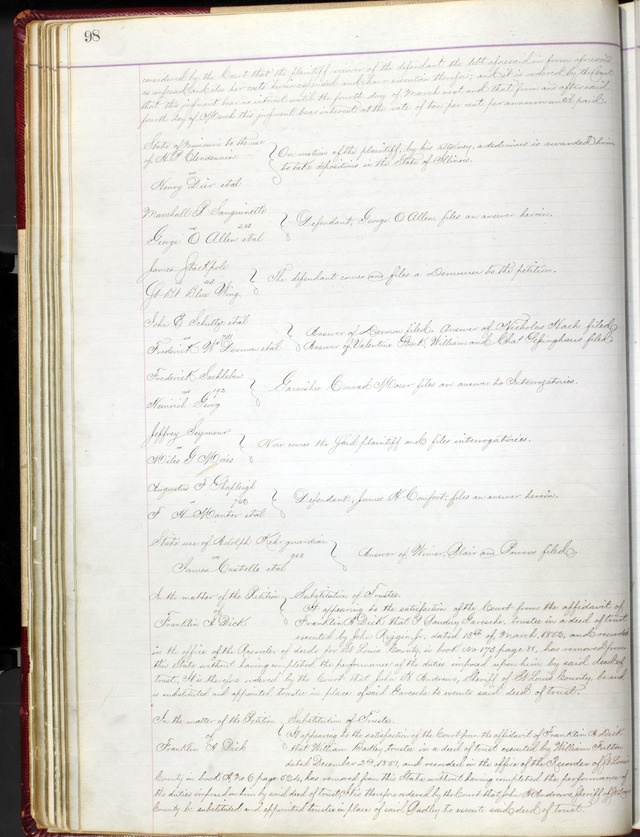 98
considered by the Court that the plaintiff recover of the defendant the debt aforesaid in form aforesaid
as and also her costs herein expended and have execution therefor; and it is ordered by the Court
that this judgment bear no interest until the fourth day of March next and that from and after said
fourth day of March this judgment bear interest at the rate of ten per cent per annum until paid.
State of Missouri to the use
of H. P. Clendennin
vs
Henry Dier et al
On motion of the plaintiff, by his attorney, a dedimus is awarded him
to take depositions in the State of Illinois.
Marshall P Sanguinette
vs
George O Allen et al
Defendant, George O Allen, files an answer herein.
James Stackpole
vs
St Bt Blue Wing
The defendant comes and files a Demurrer to the petition.
John E Schultze et al
vs
Frederick W et al
Answer of filed. Answer of Nicholas filed
Answer of Valentine William and Chas filed
Frederick
vs 192
Heinrich Georg
Garnishee Conrad Moser files an answer to Interrogatories.
Jeffrey Seymour
vs
Miles G Moies
Now comes the said plaintiff and files interrogatories.
Augustus F Shapleigh
vs 760
F H Manter et al
Defendant, James H Comfort, files an answer herein.
State use of Adolph Kehr guardian
vs 903
James Castello et al
Answer of Blair and Powers filed
In the matter of the Petition
of
Franklin A Dick
Substitution of Trustee.
It appearing to the satisfaction of the Court from the affidavit of
Franklin A Dick that P Daudry Garesche, trustee in a deed of trust
executed by John Riggin Jr. dated 18th of March, 1856, and recorded
in the office of the Recorder of deeds for St Louis County, in book No 170 page 81, has removed from
this State without having completed the performance of the duties imposed upon him by said deed of
trust, It is therefore ordered by the Court that John H Andrews, Sheriff of St Louis County, be and
is substituted and appointed trustee in place of said Garesche to execute said deed of trust.
In the matter of the Petition
of
Franklin A Dick
Substitution of Trustee.
It appearing to the satisfaction of the Court from the affidavit of Franklin A Dick
that William Badley, trustee in a deed of trust executed by William
dated December 2nd, 1851, and recorded in the office of the Recorder of St Louis
County in book No 6 page 504, has removed from this State without having completed the performance of
the duties imposed on him by said deed of trust, It is therefore ordered by the Court that John H Andrews, Sheriff of St Louis
County be substituted and appointed trustee in place of said Badley to execute said deed of trust.